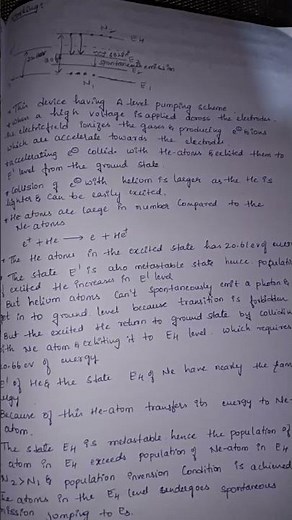 Working:
E4
E3
spontaneous emission
E2
N1
E1
• This device having 4 level pumping scheme
• When a high voltage is applied across the electrodes.
the electric field ionizes the gases & producing e⊖ & ions
which are accelerate towards the electrodes
• accelerating e⊖ collide with He-atoms & excited them to
E' level from the ground state
• Collision of e⊖ with helium is larger as the He is
lighter & can be easily excited.
• He atoms are large in number compared to the
Ne-atoms
e* + He → e + He*
• The He atoms in the excited state has 20.61 eV of energy
• The state E' is also metastable state hence populati
of excited He increases in E' level
But helium atoms can't spontaneously emit a photon &
get in to ground level because transition is forbidden
But the excited He return to ground state by collidin
with Ne atom & exciting it to E4 level. which requires
20.66 eV of energy
E' of He & the state E4 of Ne have nearly the same
energy
Because of this He-atom transfers its energy to Ne-
atom.
The state E4 is metastable hence the population of
atom in E4 exceeds population of Ne-atom in E4
N2>N1 & population invension Condition is achieved
The atoms in the E4 level undergoes spontaneous
emission jumping to E3.